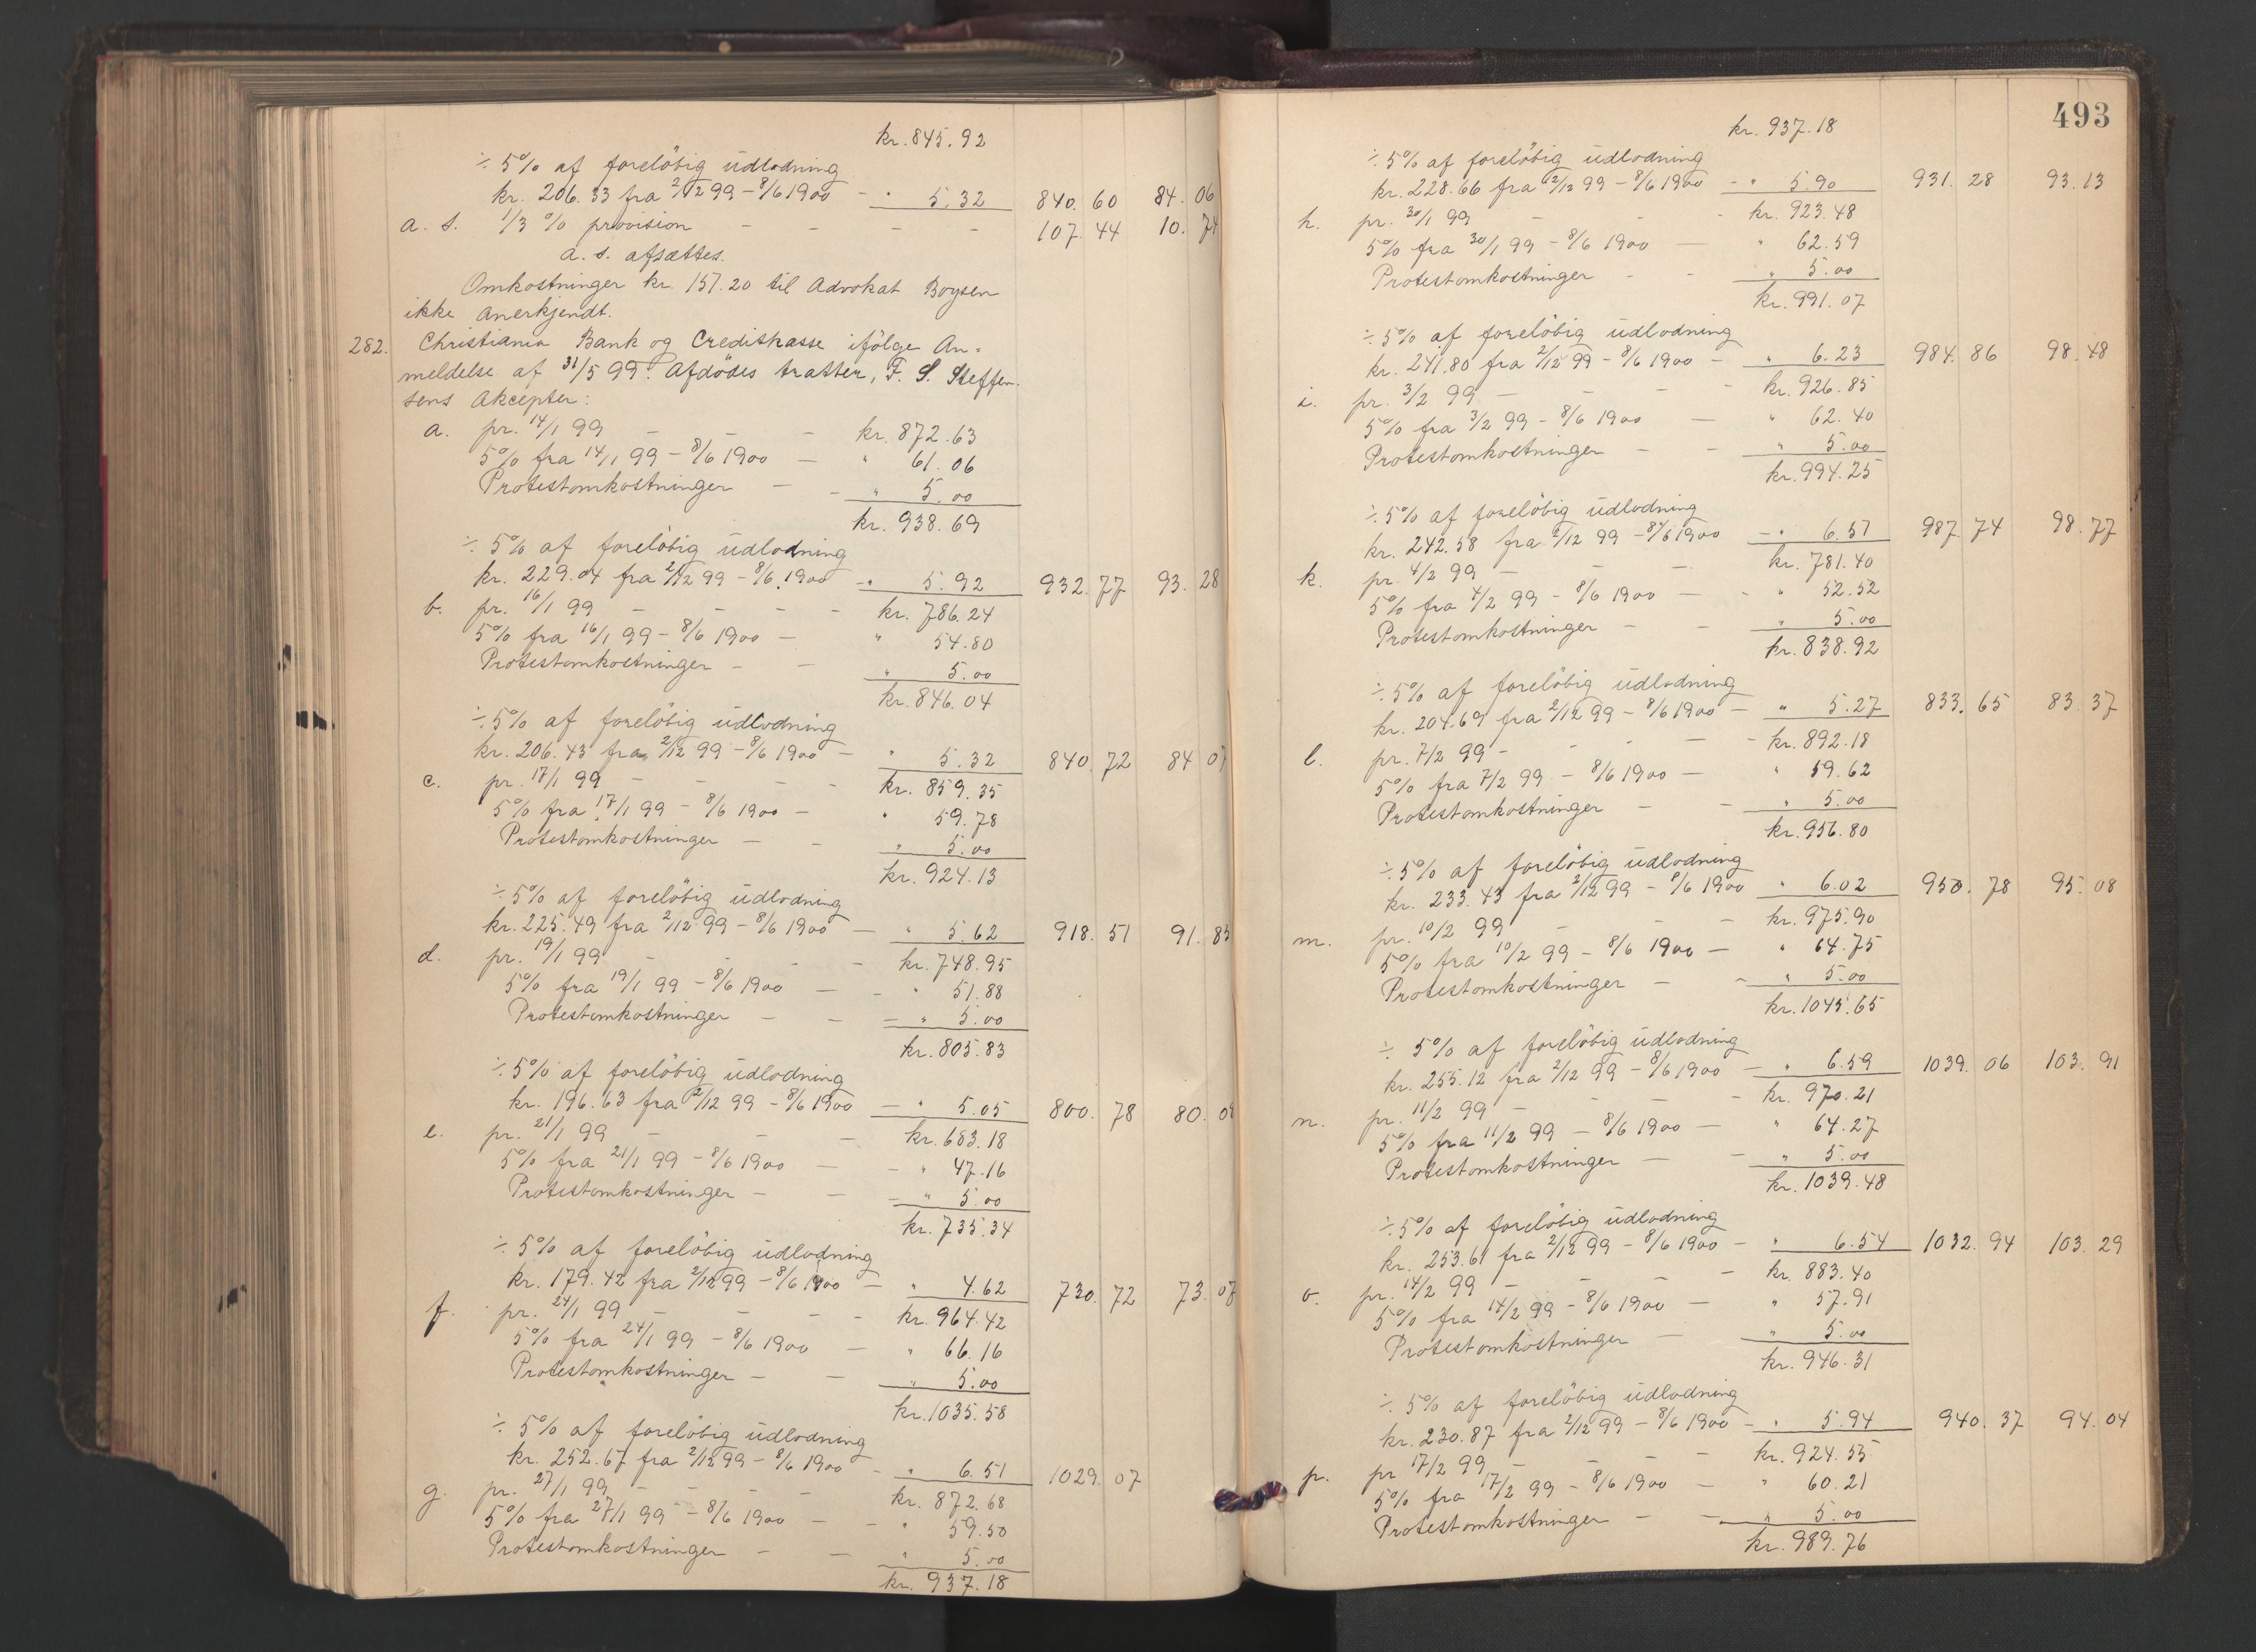 kr. 845.92
÷ 5% af forelöbig üdlodning
kr. 206.33 fra 2/12 99 – 8/6 1900 – " 5.32 840.60 84.06
a. s. 1/3 % provision – – – – 107.44 10.74
a. s. afsættes.
Omkostninger kr. 157.20 til Advokat Boysen
ikke anerkjendt.
282. Christiania Bank og Creditkasse ifölge An=
meldelse af 31/5 99. Afdödes tratter, F. S. Steffen=
sens Akcepter:
a. pr. 14/1 99 – – – kr. 872.63
5% fra 14/1 99 – 8/6 1900 – " 61.06
Protestomkostninger – – " 5.00
kr. 938.69
÷ 5% af forelöbig üdlodning
kr. 229.04 fra 2/12 99 – 8/6 1900 – " 5.92 932.77 93.28
b. pr. 16/1 99 – – – – kr. 786.24
5% fra 16/1 99 – 8/6 1900 – " 54.80
Protestomkostninger – – " 5.00
kr. 846.04
÷ 5% af forelöbig üdlodning
kr. 206.43 fra 2/12 99 – 8/6 1900 – " 5.32 840.72 84.07
c. pr. 17/1 99 – – – – kr. 859.35
5% fra 17/1 99 – 8/6 1900 – " 59.78
Protestomkostninger – – " 5.00
kr. 924.13
÷ 5% af forelöbig üdlodning
kr. 225.49 fra 2/12 99 – 8/6 1900 – " 5.62 918.51 91.85
d. pr. 19/1 99 – – – – kr. 748.95
5% fra 19/1 99 – 8/6 1900 – – " 51.88
Protestomkostninger – – – " 5.00
kr. 805.83
÷ 5% af forelöbig üdlodning
kr. 196.63 fra 2/12 99 – 8/6 1900 – " 5.05 800.78 80.08
e. pr. 21/1 99 – – – kr. 683.18
5% fra 21/1 99 – 8/6 1900 – – " 47.16
Protestomkostninger – – – " 5.00
kr. 735.34
÷ 5% af forelöbig üdlodning
kr. 179.42 fra 2/12 99 – 8/6 1900 – " 4.62 730.72 73.07
f. pr. 24/1 99 – – – – kr. 964.42
5% fra 24/1 99 – 8/6 1900 – " 66.16
Protestomkostninger – – " 5.00
kr. 1035.58
÷ 5% af forelöbig üdlodning
kr. 252.67 fra 2/12 99 – 8/6 1900 – " 6.51 1029.07
g. pr. 27/1 99 – – – – kr. 872.68
5% fra 27/1 99 – 8/6 1900 – – " 59.50
Protestomkostninger – – " 5.00
kr. 937.18
493
kr. 937.18
÷ 5% af forelöbig üdlodning
kr. 228.66 fra 2/12 99 – 8/6 1900 – " 5.90 931.28 93.13
h. pr. 30/1 99 – – – kr. 923.48
5% fra 30/1 99 – 8/6 1900 – " 62.59
Protestomkostninger – – " 5.00
kr. 991.07
÷ 5% af forelöbig üdlodning
kr. 241.80 fra 2/12 99 – 8/6 1900 – " 6.23 984.86 98.48
i. pr. 3/2 99 – – – – kr. 926.85
5% fra 3/2 99 – 8/6 1900 – " 62.40
Protestomkostninger – – " 5.00
kr. 994.25
÷ 5% af forelöbig üdlodning
kr. 242.58 fra 2/12 99 – 8/6 1900 – " 6.51 987.74 98.77
k. pr. 4/2 99 – – – kr. 781.40
5% fra 4/2 99 – 8/6 1900 – – " 52.52
Protestomkostninger – – " 5.00
kr. 838.92
÷ 5% af forelöbig üdlodning
kr. 204.69 fra 2/12 99 – 8/6 1900 – " 5.27 833.65 83.37
l. pr. 7/2 99 – – – – – kr. 892.18
5% fra 7/2 99 – 8/6 1900 – " 59.62
Protestomkostninger – – " 5.00
kr. 956.80
÷ 5% af forelöbig üdlodning
kr. 233.43 fra 2/12 99 – 8/6 1900 " 6.02 950.78 95.08
m. pr. 10/2 99 – – – kr. 975.90
5% fra 10/2 99 – 8/6 1900 – " 64.75
Protestomkostninger – – " 5.00
kr. 1045.65
÷ 5% af forelöbig üdlodning
kr. 255.12 fra 2/12 99 – 8/6 1900 – " 6.59 1039.06 103.91
n. pr. 11/2 99 – – – – kr. 970.21
5% fra 11/2 99 – 8/6 1900 – " 64.27
Protestomkostninger – – " 5.00
kr. 1039.48
÷ 5% af forelöbig üdlodning
kr. 253.61 fra 2/12 99 – 8/6 1900 – " 6.54 1032.94 103.29
o. pr. 14/2 99 – – – – kr. 883.40
5% fra 14/2 99 – 8/6 1900 – " 57.91
Protestomkostninger – " 5.00
kr. 946.31
÷ 5% af forelöbig üdlodning
kr. 230.87 fra 2/12 99 – 8/6 1900 – " 5.94 940.37 94.04
p. pr 17/2 99 – – – – kr. 924.55
5% fra 17/2 99 – 8/6 1900 – " 60.21
Protestomkostninger – – " 5.00
kr. 989.76